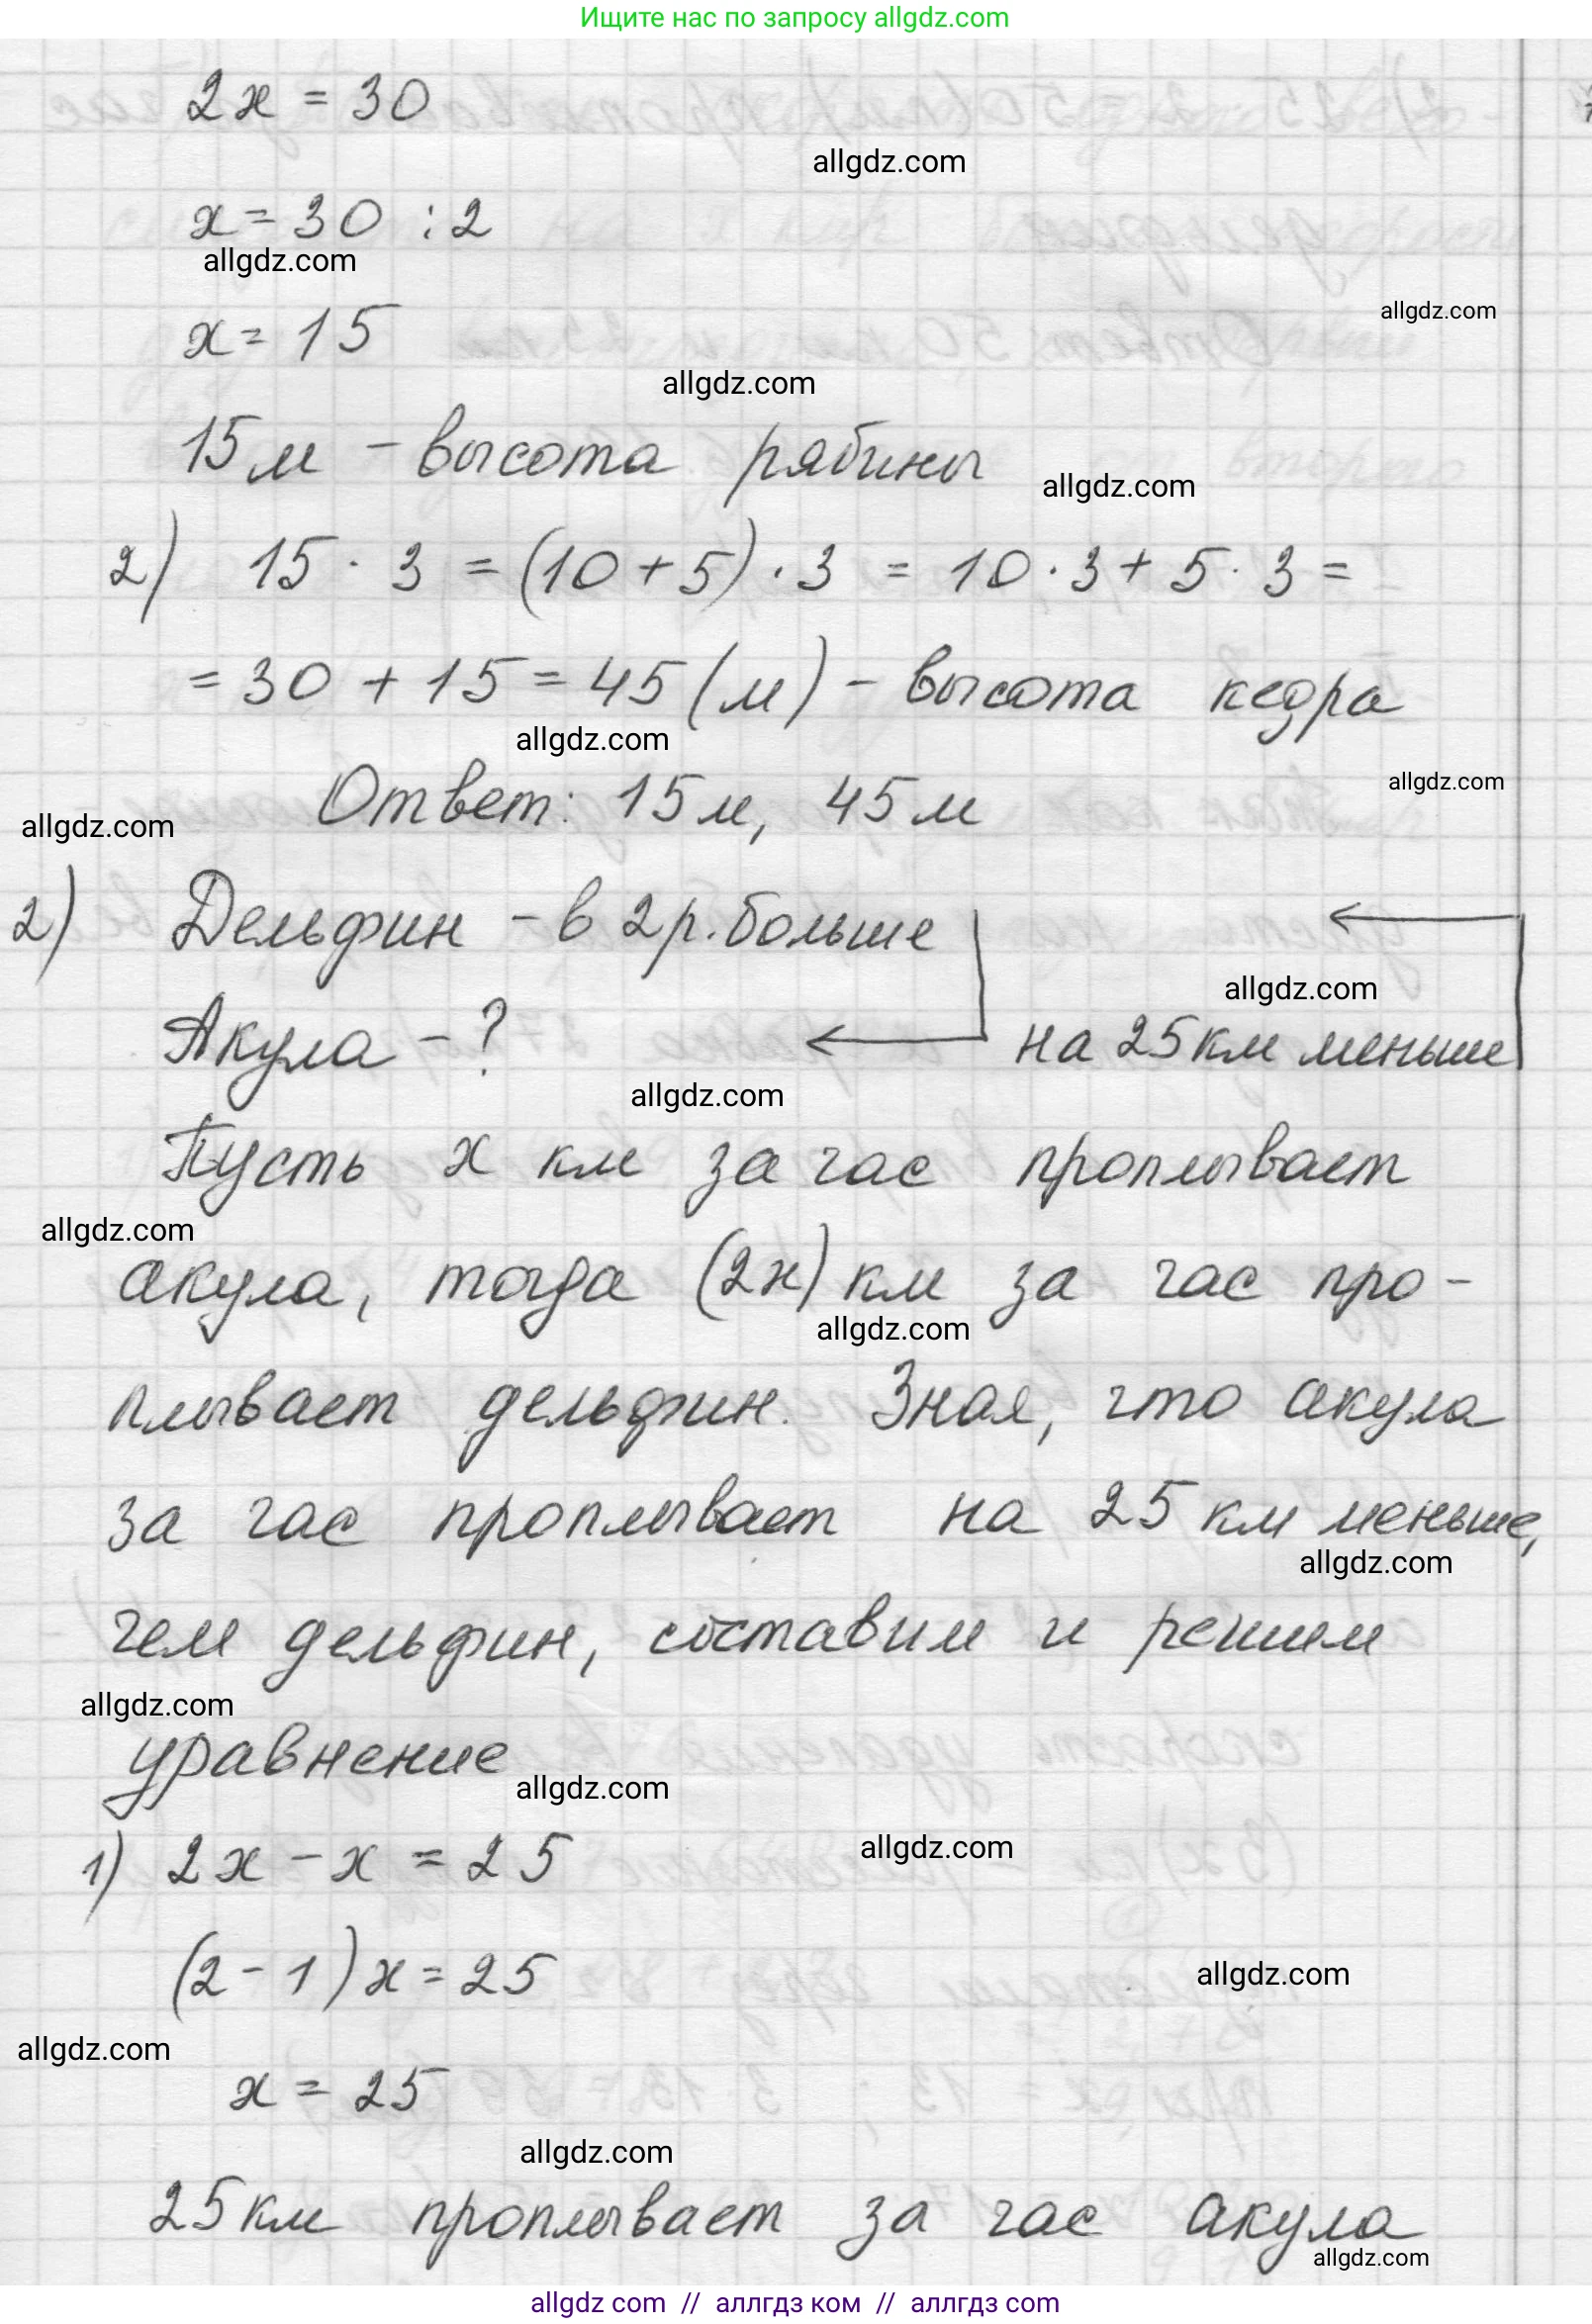 Ищите нас по запросу allgdz.com
2x = 30
allgdz.com
x = 30 : 2
allgdz.com
allgdz.com
x = 15
allgdz.com
15 м - высота рябины
allgdz.com
2) 15 · 3 = (10 + 5) · 3 = 10 · 3 + 5 · 3 =
= 30 + 15 = 45 (м) - высота кедра
allgdz.com
allgdz.com
Ответ: 15 м, 45 м
allgdz.com
2) Дельфин - в 2 р. больше
allgdz.com
Акула - ? на 25 км меньше
allgdz.com
Пусть x км за час проплывает
allgdz.com
акула, тогда (2x) км за час про-
allgdz.com
плывает дельфин. Зная, что акула
за час проплывает на 25 км меньше,
allgdz.com
чем дельфин, составим и решим
allgdz.com
уравнение
allgdz.com
1) 2x - x = 25
allgdz.com
(2 - 1) x = 25
allgdz.com
allgdz.com
x = 25
allgdz.com
25 км проплывает за час акула
allgdz.com
allgdz.com // аллгдз ком // аллгдз.com